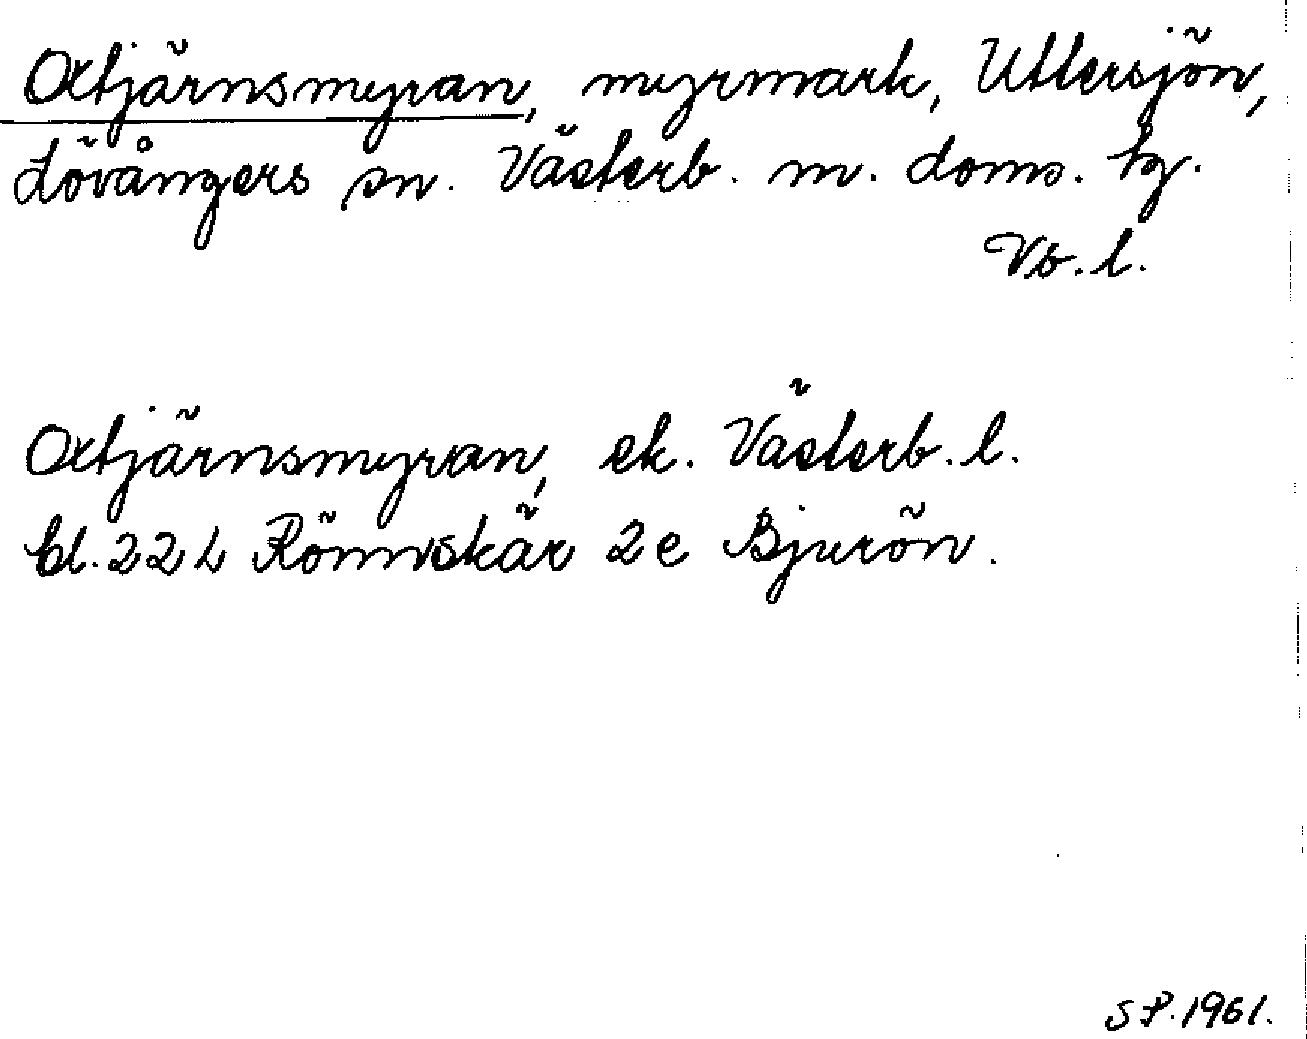 Oxtjärnsmyran, myrmark, Uttersjön,
Lövångers sn. Västerb. m. doms. tg.
Vb. l.
Oxtjärnsmyran, ek. Västerb. l.
bl. 22 L Rönnskär 2 e Bjurön.
S P. 1961.